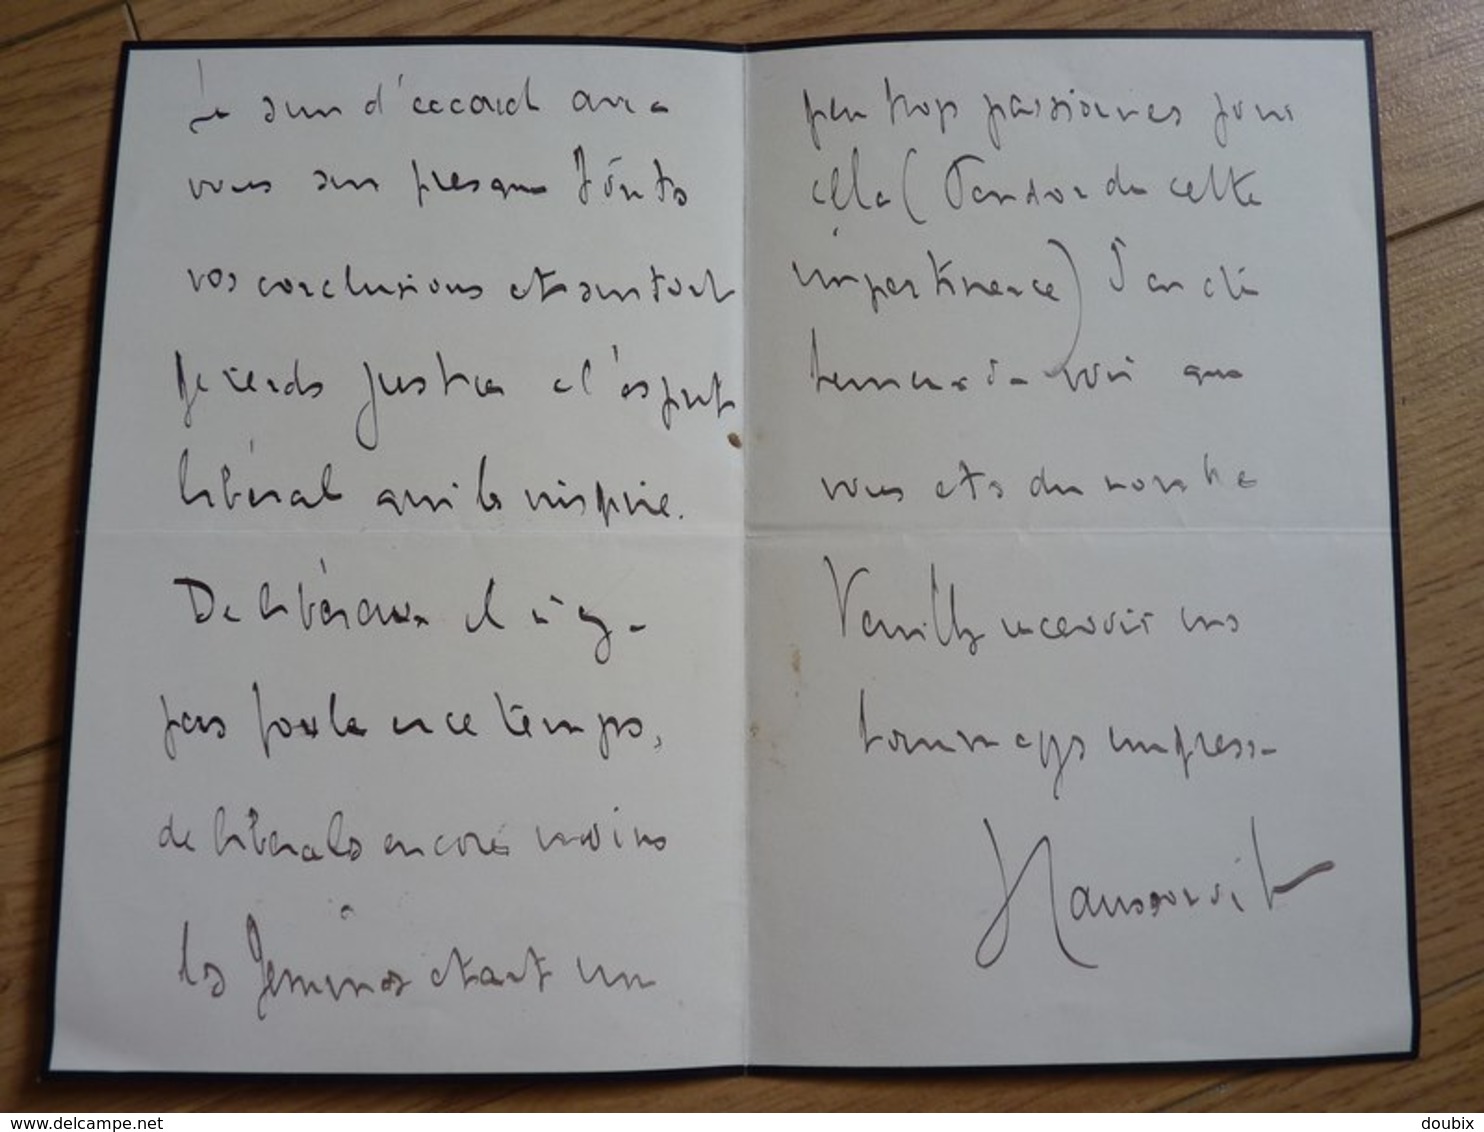 Je suis d'accord avec
vous sur presque toutes
vos conclusions et surtout
je rends justice à l'esprit
libéral qui les inspire.
De libéraux il n'y a
pas foule en ce temps,
de libérales encore moins
les femmes étant un
peu trop passionnées pour
cela (Pardon de cette
impertinence) J'ai été
heureux de voir que
vous êtes du nombre
Veuillez recevoir mes
hommages empressés
Haussonville
www.delcampe.net
doubix